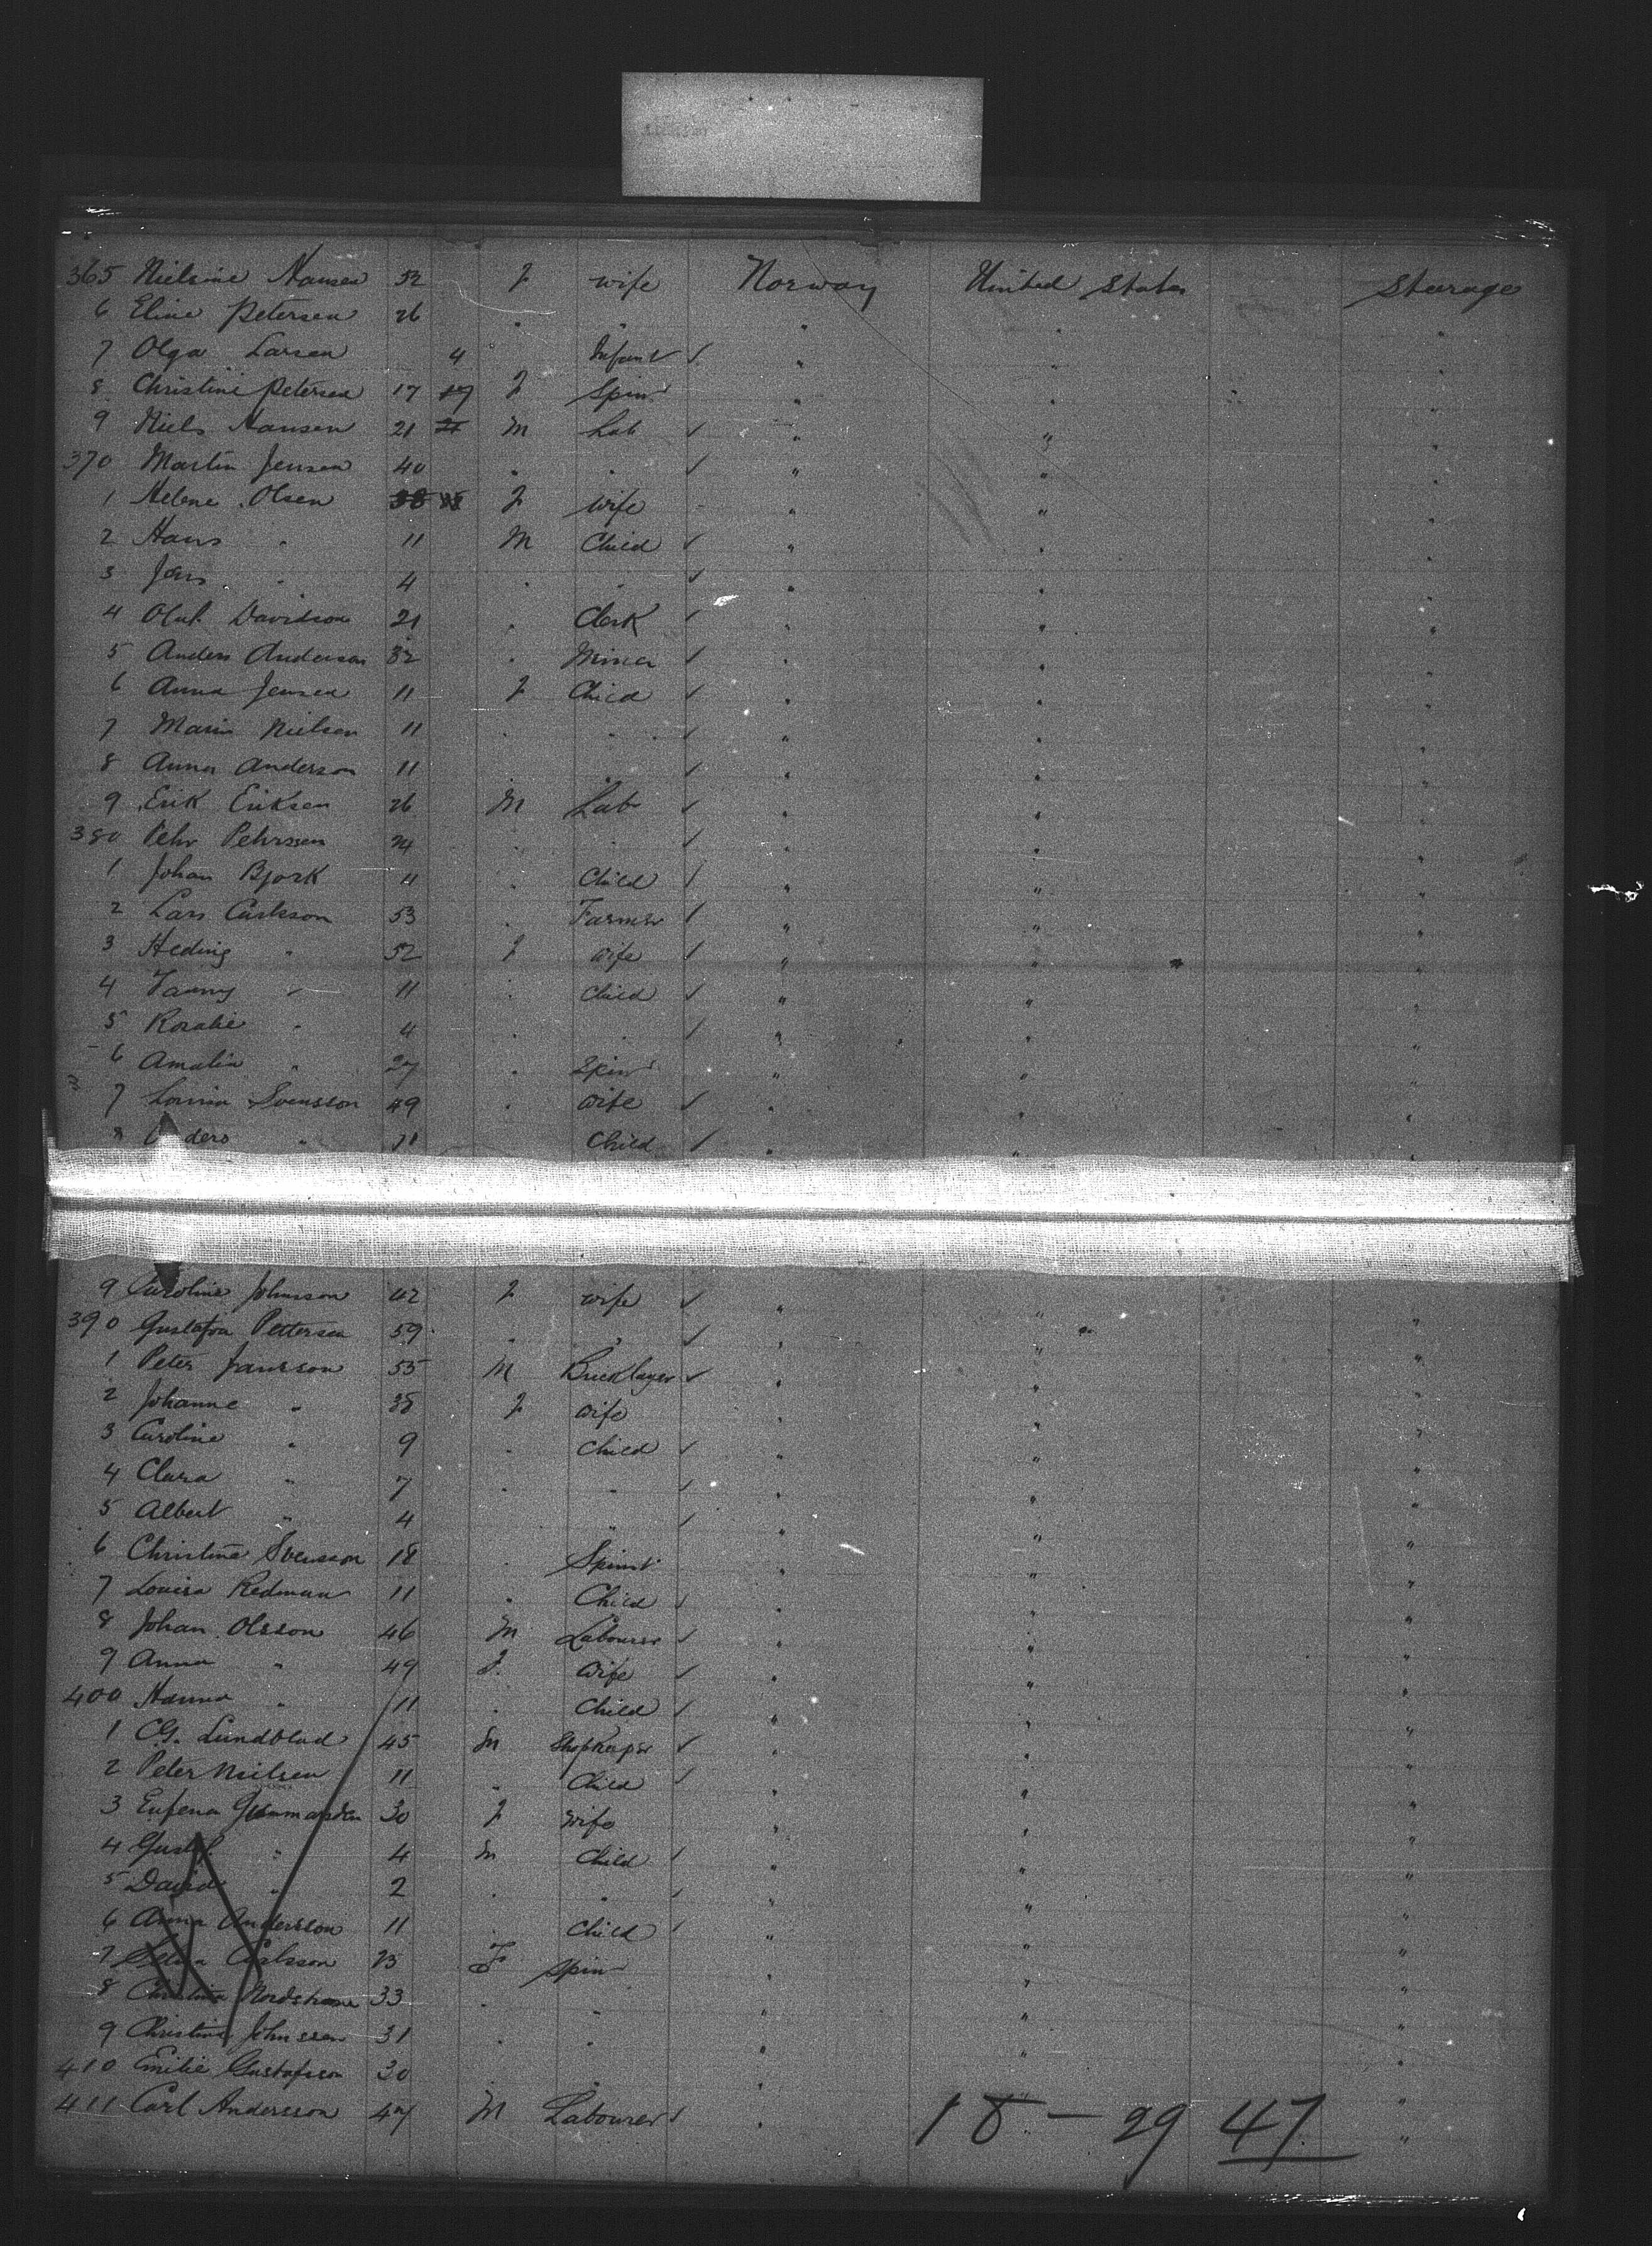 365 Nielsine Hansen 52 F wife Norway United States Steerage
6 Eline Petersen 26 " " " " "
7 Olga Larsen 4 " Infant ✓ " " "
8 Christine Petersen 17 F Spin " " "
9 Niels Hansen 21 21 M Lab ✓ " " "
370 Martin Jensen 40 " " ✓ " " "
1 Helene Olsen 38 F wife " " "
2 Hans " 11 M Child ✓ " " "
3 Jens " 4 " " ✓ " " "
4 Oluf Davidson 21 " Clerk ✓ " " "
5 Anders Anderson 32 " Miner ✓ " " "
6 Anna Jensen 11 F Child ✓ " " "
7 Marie Nielsen 11 " " ✓ " " "
8 Anna Anderson 11 ✓ " " "
9 Erik Eriksen 26 M Lab ✓ " " "
380 Pehr Pehrssen 24 " " ✓ " " "
1 Johan Bjork 11 " Child ✓ " " "
2 Lars Carlsson 53 " Farmer ✓ " " "
3 Hedvig " 52 F wife ✓ " " "
4 Fanny " 11 " Child ✓ " " "
5 Rosalie " 4 " " ✓ " " "
6 Amalia " 27 " Spin " " "
7 Svensson 49 " wife ✓ " " "
8 " 11 Child ✓ " " "
9 Caroline Johnsson 42 F wife ✓ " " "
390 Gustafva Petterson 59 " " ✓ " " "
1 Peter Jansson 55 M Bricklayer ✓ " " "
2 Johanne " 38 F wife " " "
3 Caroline " 9 " Child ✓ " " "
4 Clara " 7 " " ✓ " " "
5 Albert " 4 " ✓ " " "
6 Christine Svensson 18 " Spinst " " "
7 Louisa Redman 11 " Child ✓ " " "
8 Johan Olsson 46 M Labourer ✓ " " "
9 Anna " 49 F. Wife ✓ " " "
400 Hanna " 11 " Child ✓ " " "
1 C.G. Lundblad 45 M Shopkeeper ✓ " " "
2 Peter Nielsen 11 " Child ✓ " " "
3 30 F Wife " " "
4 Gustaf " 4 M Child ✓ " " "
5 David " 2 " " ✓ " " "
6 Anna Andersson 11 " Child ✓ " " "
7 Carlsson 23 F Spin " " "
8 Christina Nordstrom 33 " " " " "
9 Christine Johnssen 31 " " " " "
410 Emilie Gustafsson 30 " " " "
411 Carl Andersson 47 M Labourer ✓ " "
18 – 29 47